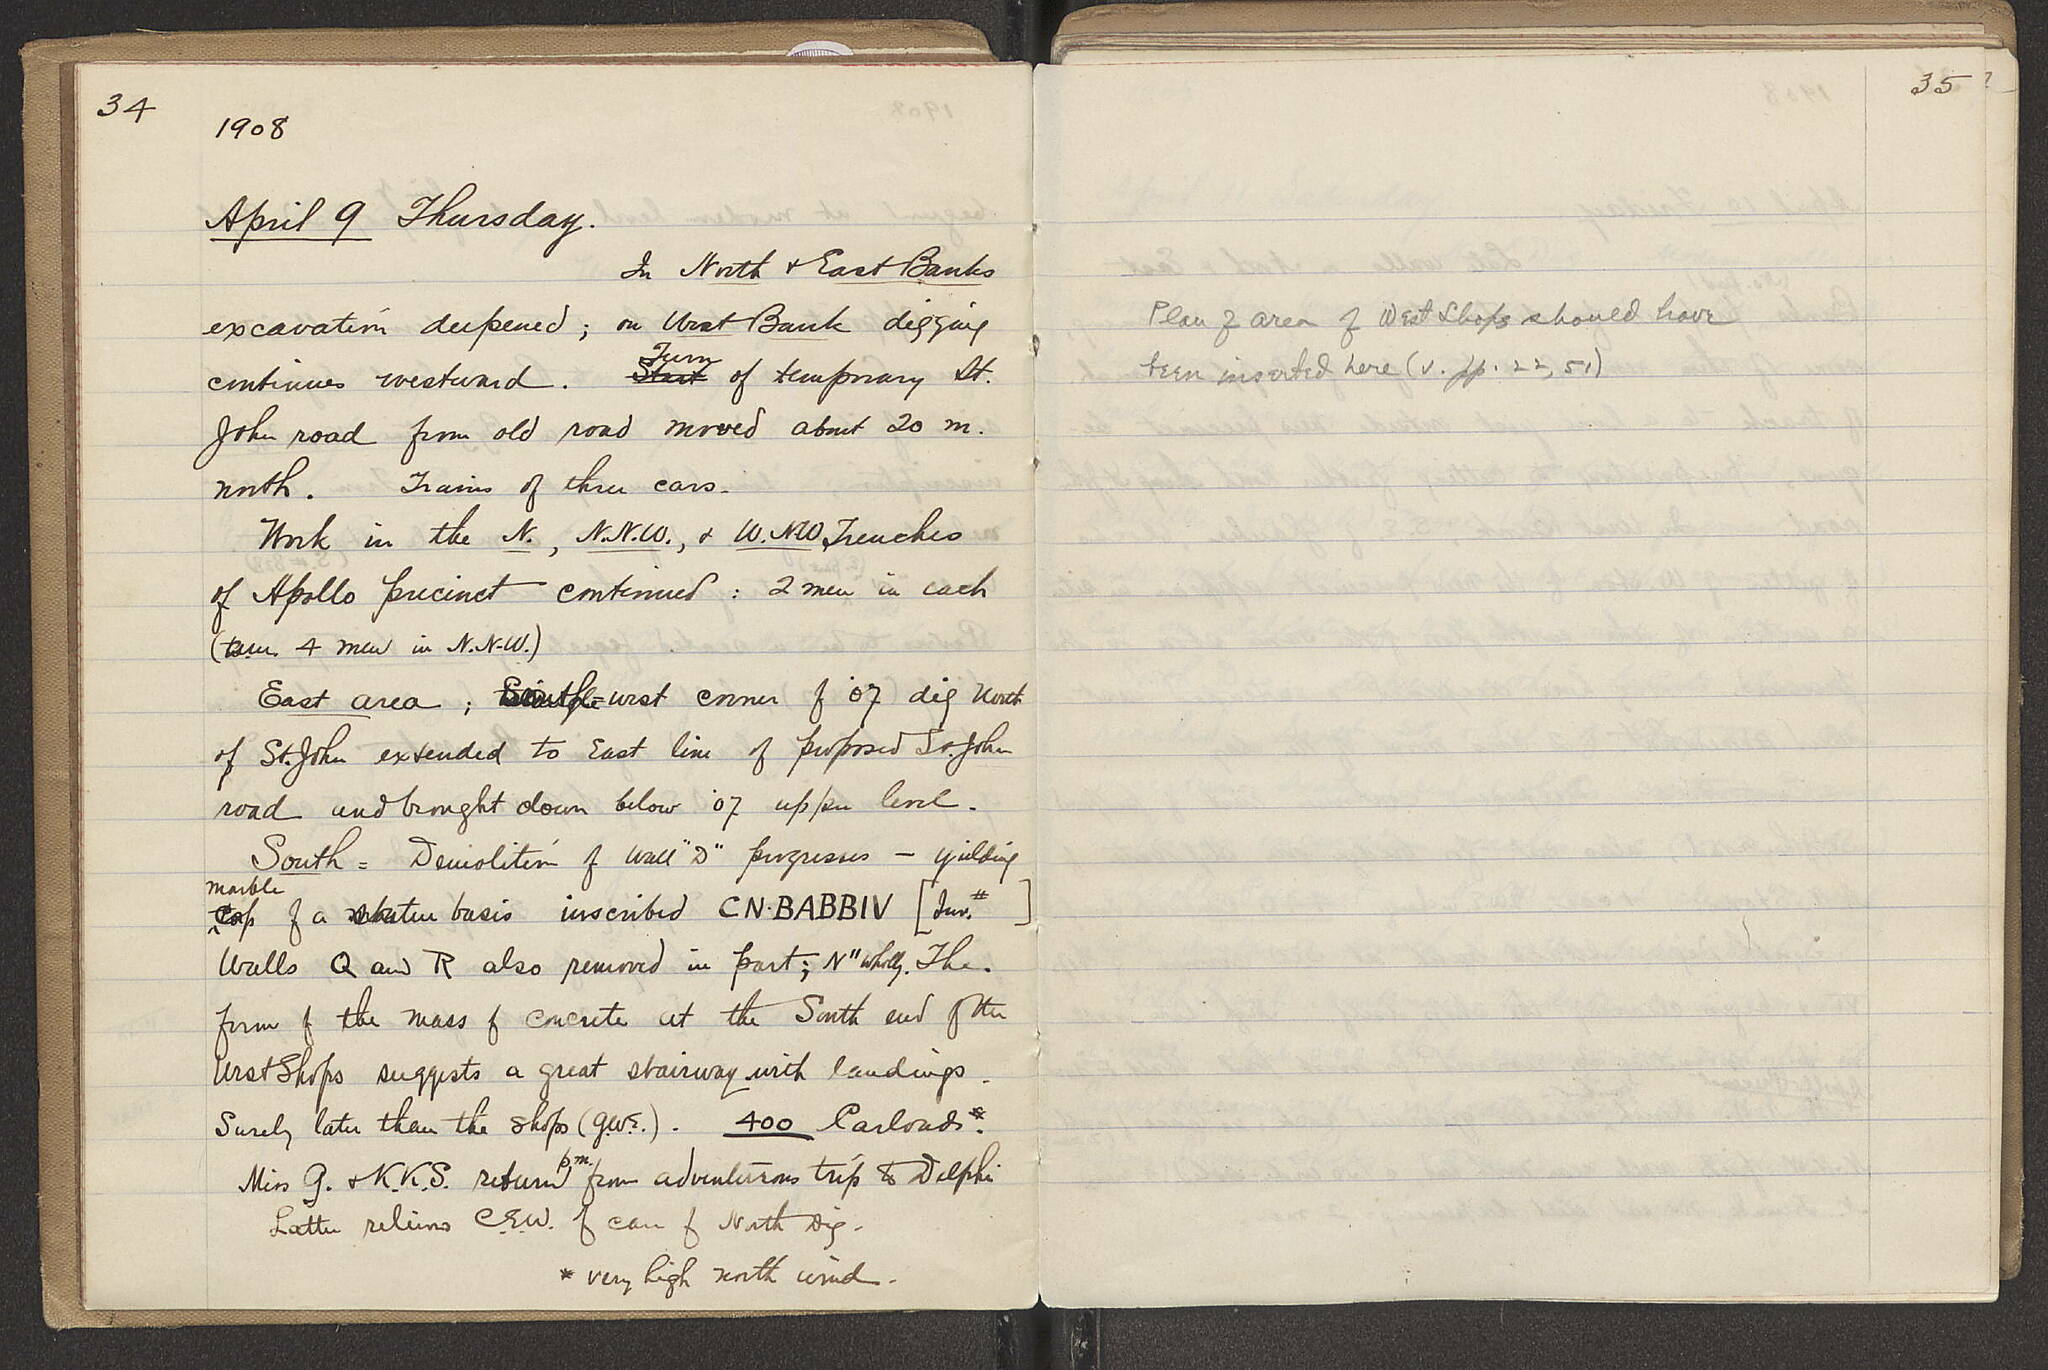 34
1908
April 9 Thursday.
In North & East Banks
excavation deepened; on West Bank digging
continues westward. Turn of temporary St.
John road from old road moved about 20 m.
north. Trains of three cars.
Work in the N., N.N.W., & W.N.W. Trenches
of Apollo precinct continued: 2 men in each
( 4 men in N.N.W.)
East area; South-west corner of '07 dig north
of St. John extended to East line of proposed St. John
road and brought down below '07 upper level.
South = Demolition of Wall "D" progresses — yielding
marble
top of a statue basis inscribed CN·BABBIV [Inv.# ]
Walls Q and R also removed in part; N" wholly. The
form of the mass of concrete at the South end of the
West Shops suggests a great stairway with landings.
Surely later than the shops (G.W.E.). 400 Carloads*.
Miss G. & K.K.S. return p.m. from adventurous trip to Delphi
Latter relieves C.E.W. of care of North Dig.
* very high north wind.
35
Plan of area of West Shops should have
been inserted here (v. pp. 22, 51)